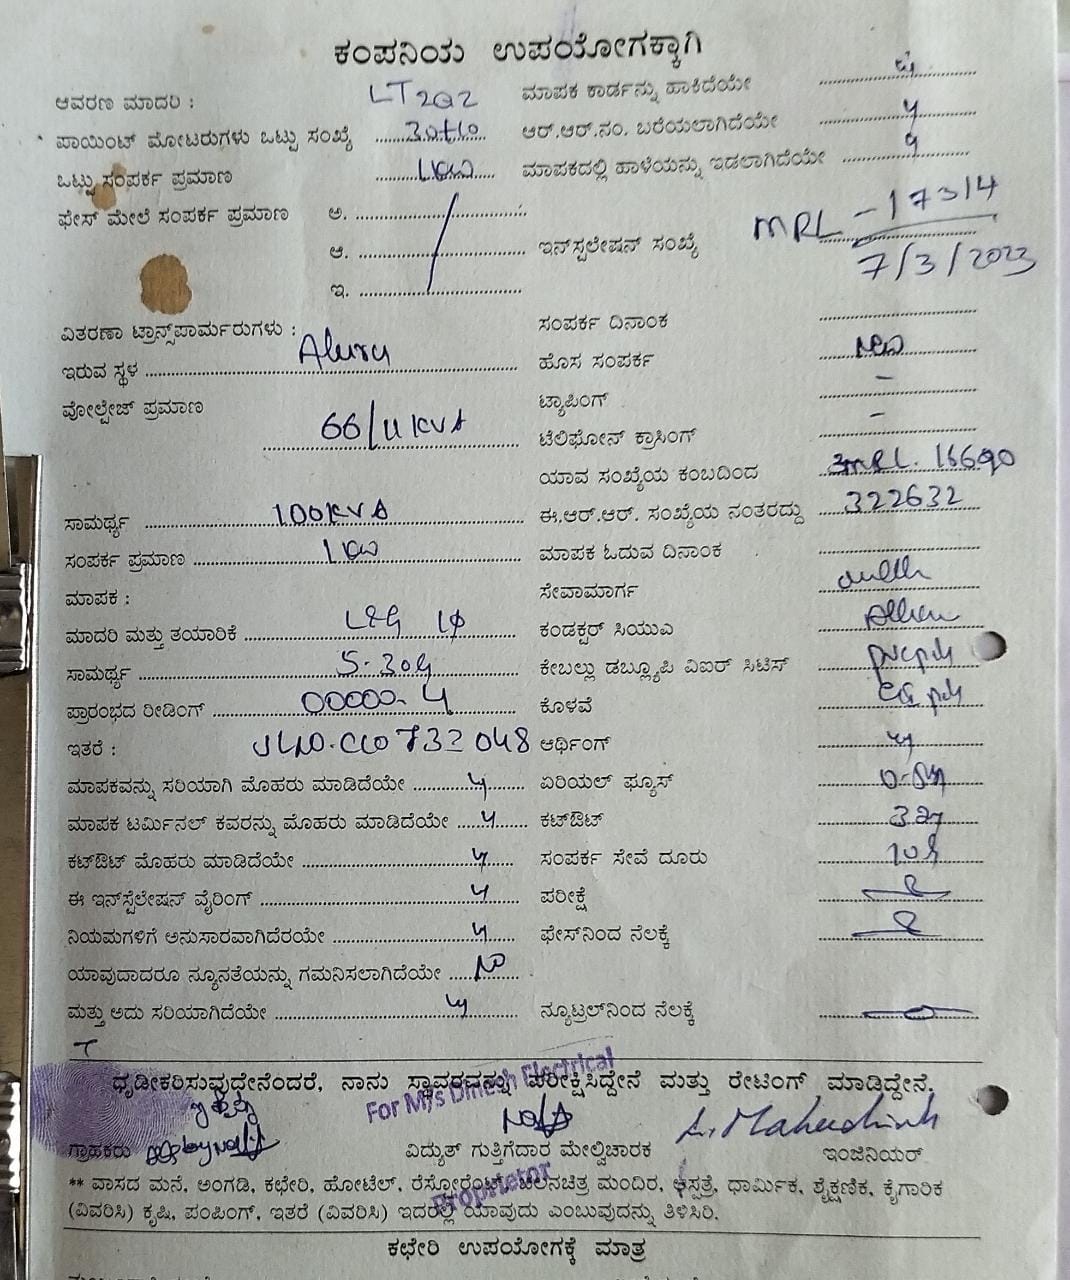 ಕಂಪನಿಯ ಉಪಯೋಗಕ್ಕಾಗಿ
ಆವರಣ ಮಾದರಿ : LT2a2 ಮಾಪಕ ಕಾರ್ಡನ್ನು ಹಾಕಿದೆಯೇ ................ y
ಪಾಯಿಂಟ್ ಮೋಟರುಗಳು ಒಟ್ಟು ಸಂಖ್ಯೆ ................ ಆರ್.ಆರ್.ನಂ. ಬರೆಯಲಾಗಿದೆಯೇ ................ y
ಒಟ್ಟು ಸಂಪರ್ಕ ಪ್ರಮಾಣ ................ 1KW ಮಾಪಕದಲ್ಲಿ ಹಾಳೆಯನ್ನು ಇಡಲಾಗಿದೆಯೇ ................ y
ಫೇಸ್ ಮೇಲೆ ಸಂಪರ್ಕ ಪ್ರಮಾಣ ಅ. ................ MRL - 17314
ಆ. ................ ಇನ್‌ಸ್ಟಲೇಷನ್ ಸಂಖ್ಯೆ ................ 7/3/2023
ಇ. ................
ವಿತರಣಾ ಟ್ರಾನ್ಸ್‌ಪಾರ್ಮರುಗಳು : ಸಂಪರ್ಕ ದಿನಾಂಕ ................
ಇರುವ ಸ್ಥಳ ................ Aluru ಹೊಸ ಸಂಪರ್ಕ ................ New
ವೋಲ್ಟೇಜ್ ಪ್ರಮಾಣ ................ 66/11 KVA ಟ್ಯಾಪಿಂಗ್ ................ -
ಟೆಲಿಫೋನ್ ಕ್ರಾಸಿಂಗ್ ................ -
ಯಾವ ಸಂಖ್ಯೆಯ ಕಂಬದಿಂದ ................ MRL. 16690
ಸಾಮರ್ಥ್ಯ ................ 100KVA ಈ.ಆರ್.ಆರ್. ಸಂಖ್ಯೆಯ ನಂತರದ್ದು ................ 322632
ಸಂಪರ್ಕ ಪ್ರಮಾಣ ................ 1KW ಮಾಪಕ ಓದುವ ದಿನಾಂಕ ................
ಮಾಪಕ : ಸೇವಾಮಾರ್ಗ ................
ಮಾದರಿ ಮತ್ತು ತಯಾರಿಕೆ ................ L&G 1φ ಕಂಡಕ್ಟರ್ ಸಿಯುಎ ................
ಸಾಮರ್ಥ್ಯ ................ 5-30 ಕೇಬಲ್ಲು ಡಬ್ಲ್ಯೂಪಿ ವಿಐರ್ ಸಿಟಿಸ್ ................
ಪ್ರಾರಂಭದ ರೀಡಿಂಗ್ ................ 00000-4 ಕೊಳವೆ ................
ಇತರೆ : 732048 ಆರ್ಥಿಂಗ್ ................ y
ಮಾಪಕವನ್ನು ಸರಿಯಾಗಿ ಮೊಹರು ಮಾಡಿದೆಯೇ ................ y ಏರಿಯಲ್ ಫ್ಯೂಸ್ ................
ಮಾಪಕ ಟರ್ಮಿನಲ್ ಕವರನ್ನು ಮೊಹರು ಮಾಡಿದೆಯೇ ................ y ಕಟ್‌ಔಟ್ ................
ಕಟ್‌ಔಟ್ ಮೊಹರು ಮಾಡಿದೆಯೇ ................ y ಸಂಪರ್ಕ ಸೇವೆ ದೂರು ................
ಈ ಇನ್‌ಸ್ಟೆಲೇಷನ್ ವೈರಿಂಗ್ ................ y ಪರೀಕ್ಷೆ ................
ನಿಯಮಗಳಿಗೆ ಅನುಸಾರವಾಗಿದೆರಯೇ ................ y ಫೇಸ್‌ನಿಂದ ನೆಲಕ್ಕೆ ................
ಯಾವುದಾದರೂ ನ್ಯೂನತೆಯನ್ನು ಗಮನಿಸಲಾಗಿದೆಯೇ ..... NO
ಮತ್ತು ಅದು ಸರಿಯಾಗಿದೆಯೇ ................ y ನ್ಯೂಟ್ರಲ್‌ನಿಂದ ನೆಲಕ್ಕೆ ................
ಧೃಡೀಕರಿಸುವುದೇನೆಂದರೆ, ನಾನು ಸ್ಥಾವರವನ್ನು ಪರೀಕ್ಷಿಸಿದ್ದೇನೆ ಮತ್ತು ರೇಟಿಂಗ್ ಮಾಡಿದ್ದೇನೆ.
For M/s Dinesh Electrical
ಗ್ರಾಹಕರು ವಿದ್ಯುತ್ ಗುತ್ತಿಗೆದಾರ ಮೇಲ್ವಿಚಾರಕ ಇಂಜಿನಿಯರ್
Proprietor
** ವಾಸದ ಮನೆ, ಅಂಗಡಿ, ಕಛೇರಿ, ಹೋಟೆಲ್, ರೆಸ್ಟೋರೆಂಟ್, ಚಲನಚಿತ್ರ ಮಂದಿರ, ಆಸ್ಪತ್ರೆ, ಧಾರ್ಮಿಕ, ಶೈಕ್ಷಣಿಕ, ಕೈಗಾರಿಕೆ
(ವಿವರಿಸಿ) ಕೃಷಿ, ಪಂಪಿಂಗ್, ಇತರೆ (ವಿವರಿಸಿ) ಇದರಲ್ಲಿ ಯಾವುದು ಎಂಬುವುದನ್ನು ತಿಳಿಸಿರಿ.
ಕಛೇರಿ ಉಪಯೋಗಕ್ಕೆ ಮಾತ್ರ